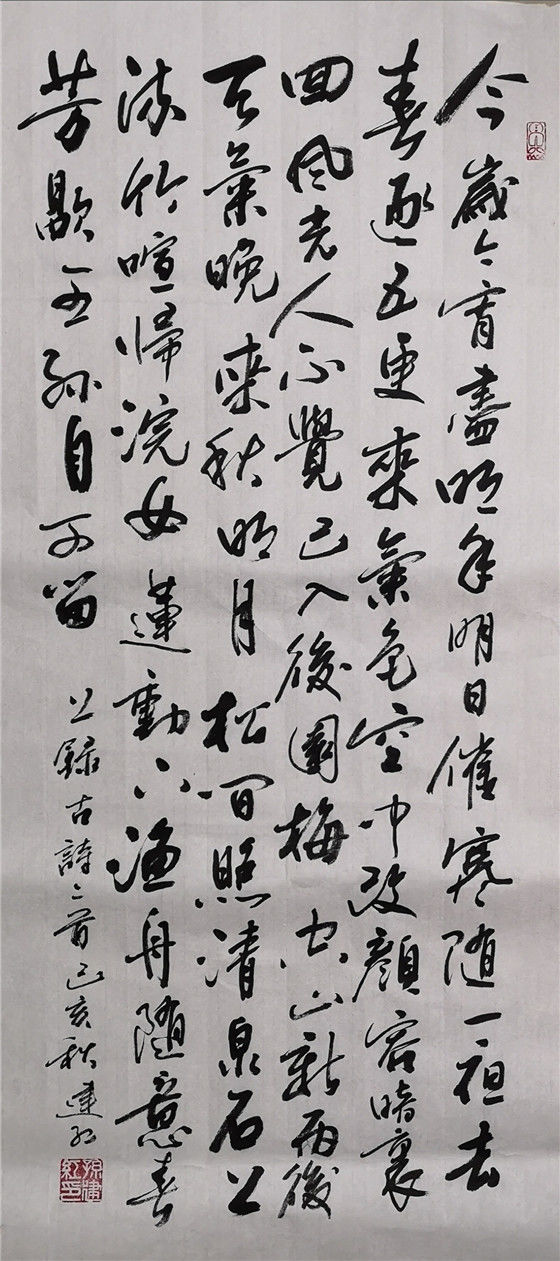 今歲今宵盡明年明日催寒随一夜去
春逐五更來氣色空中改顏容暗裏
回風光人不覺已入後園梅 空山新雨後
天氣晚來秋明月松間照清泉石上
流竹喧歸浣女蓮動下漁舟随意春
芳歇王孫自可留
上録古詩二首己亥秋建红
孫建紅印